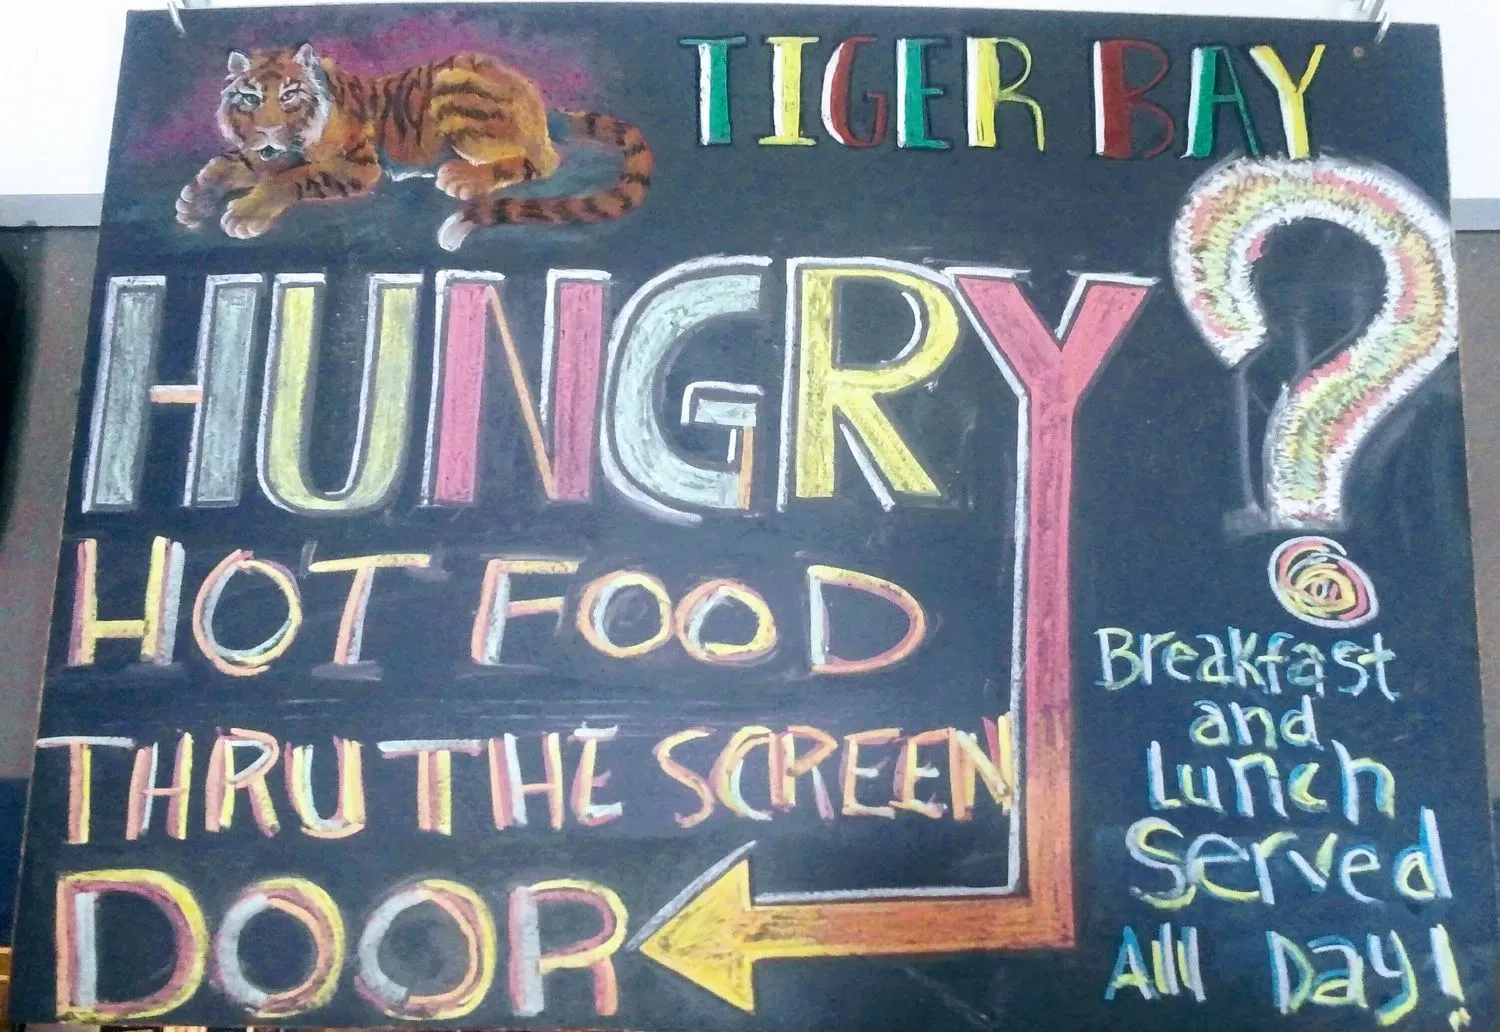 TIGER BAY
HUNGRY?
HOT FOOD
THRU THE SCREEN
DOOR
Breakfast
and
Lunch
Served
All Day!